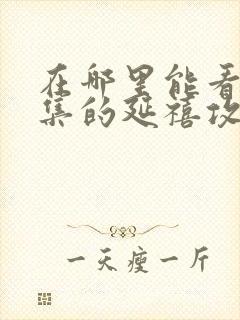 在哪里能看
集的延禧攻
一天瘦一斤